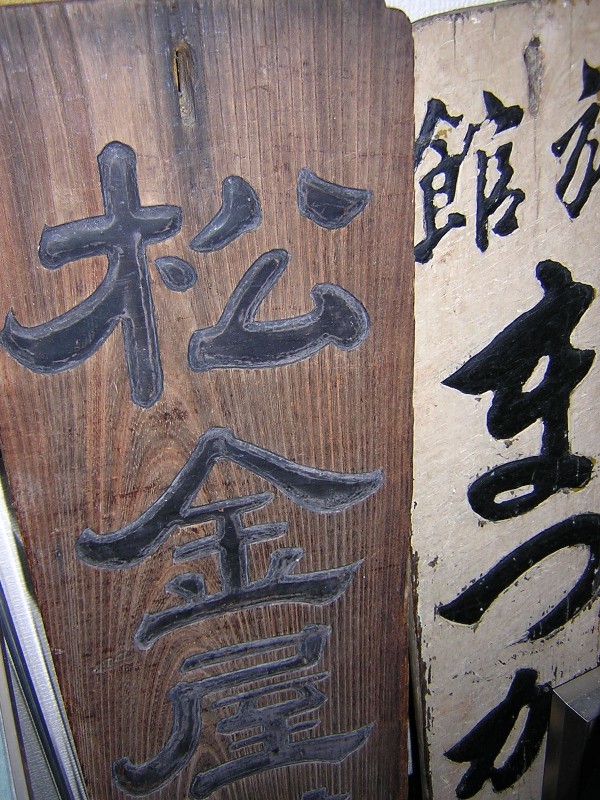 松金屋
旅館
まつか